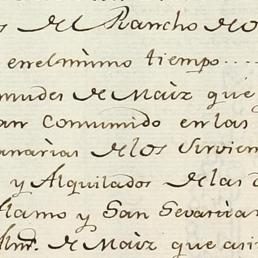 s del Rancho de
enelmismo tiempo....
mudes de Maiz que
an Consumido en las
anarias de los Sirvien
y Alquilados de las
Alamo y San Sevastian
Alm.s de Maiz que asi